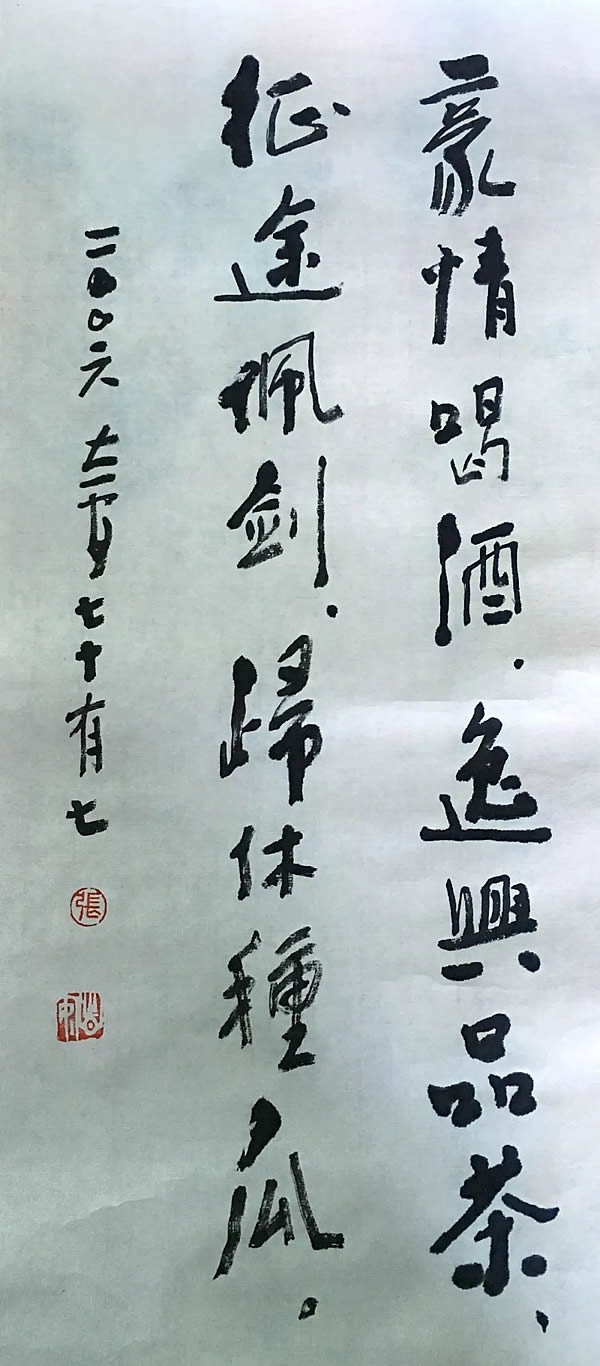 豪情喝酒.逸興品茶、
征途珮剑.歸休種瓜.
二〇〇六 七十有七
張